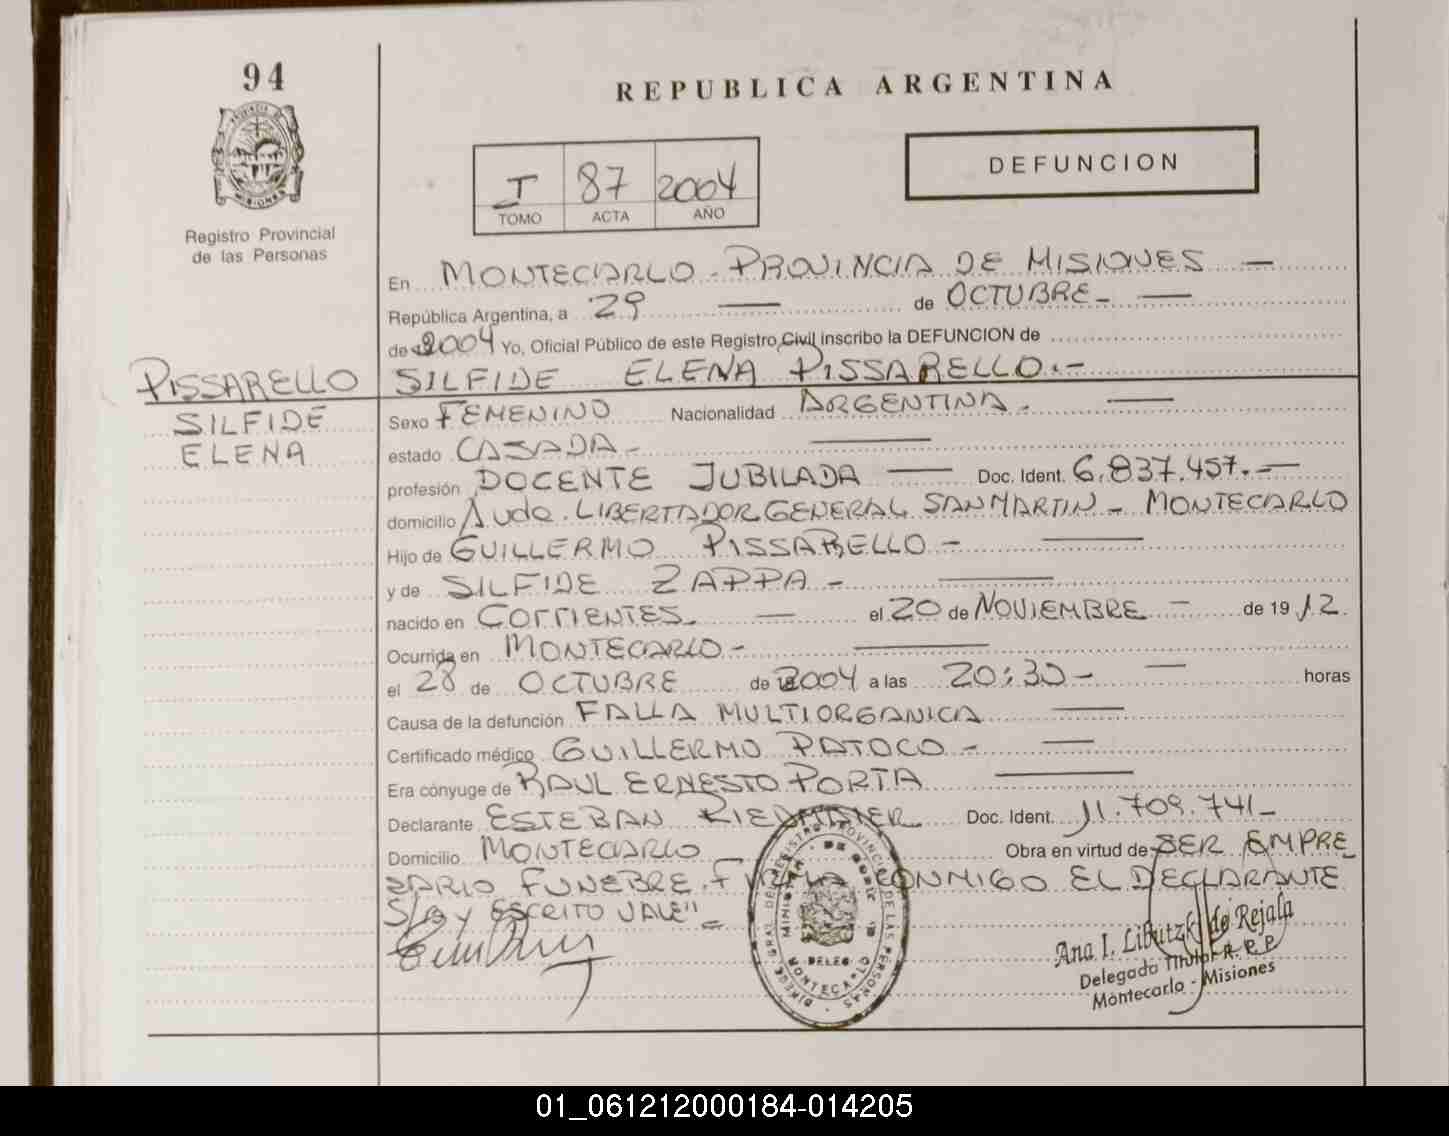 94
REPUBLICA ARGENTINA
I 87 2004
TOMO ACTA AÑO
DEFUNCION
Registro Provincial
de las Personas
En MONTECARLO - PROVINCIA DE MISIONES —
República Argentina, a 29 — de OCTUBRE - —
de 2004 Yo, Oficial Público de este Registro Civil inscribo la DEFUNCION de
PISSARELLO SILFIDE ELENA PISSARELLO.-
SILFIDE
ELENA
Sexo FEMENINO Nacionalidad ARGENTINA. —
estado CASADA - —
profesión DOCENTE JUBILADA — Doc. Ident. 6.837.457.-
domicilio Avda. LIBERTADOR GENERAL SAN MARTIN - MONTECARLO
Hijo de GUILLERMO PISSARELLO - —
y de SILFIDE ZAPPA - —
nacido en CORRIENTES. — el 20 de NOVIEMBRE - de 1912.
Ocurrida en MONTECARLO - —
el 28 de OCTUBRE de 2004 a las 20:30 - — horas
Causa de la defunción FALLA MULTIORGANICA —
Certificado médico GUILLERMO PATOCO - —
Era cónyuge de RAUL ERNESTO PORTA —
Declarante ESTEBAN Doc. Ident. 11.709.741-
Domicilio MONTECARLO Obra en virtud de SER EMPRE
SARIO FUNEBRE. CONMIGO EL DECLARANTE
S/ y ESCRITO VALE" -
Ana I. de Rejala
Delegada Titular R. P. P.
Montecarlo - Misiones
01_061212000184-014205